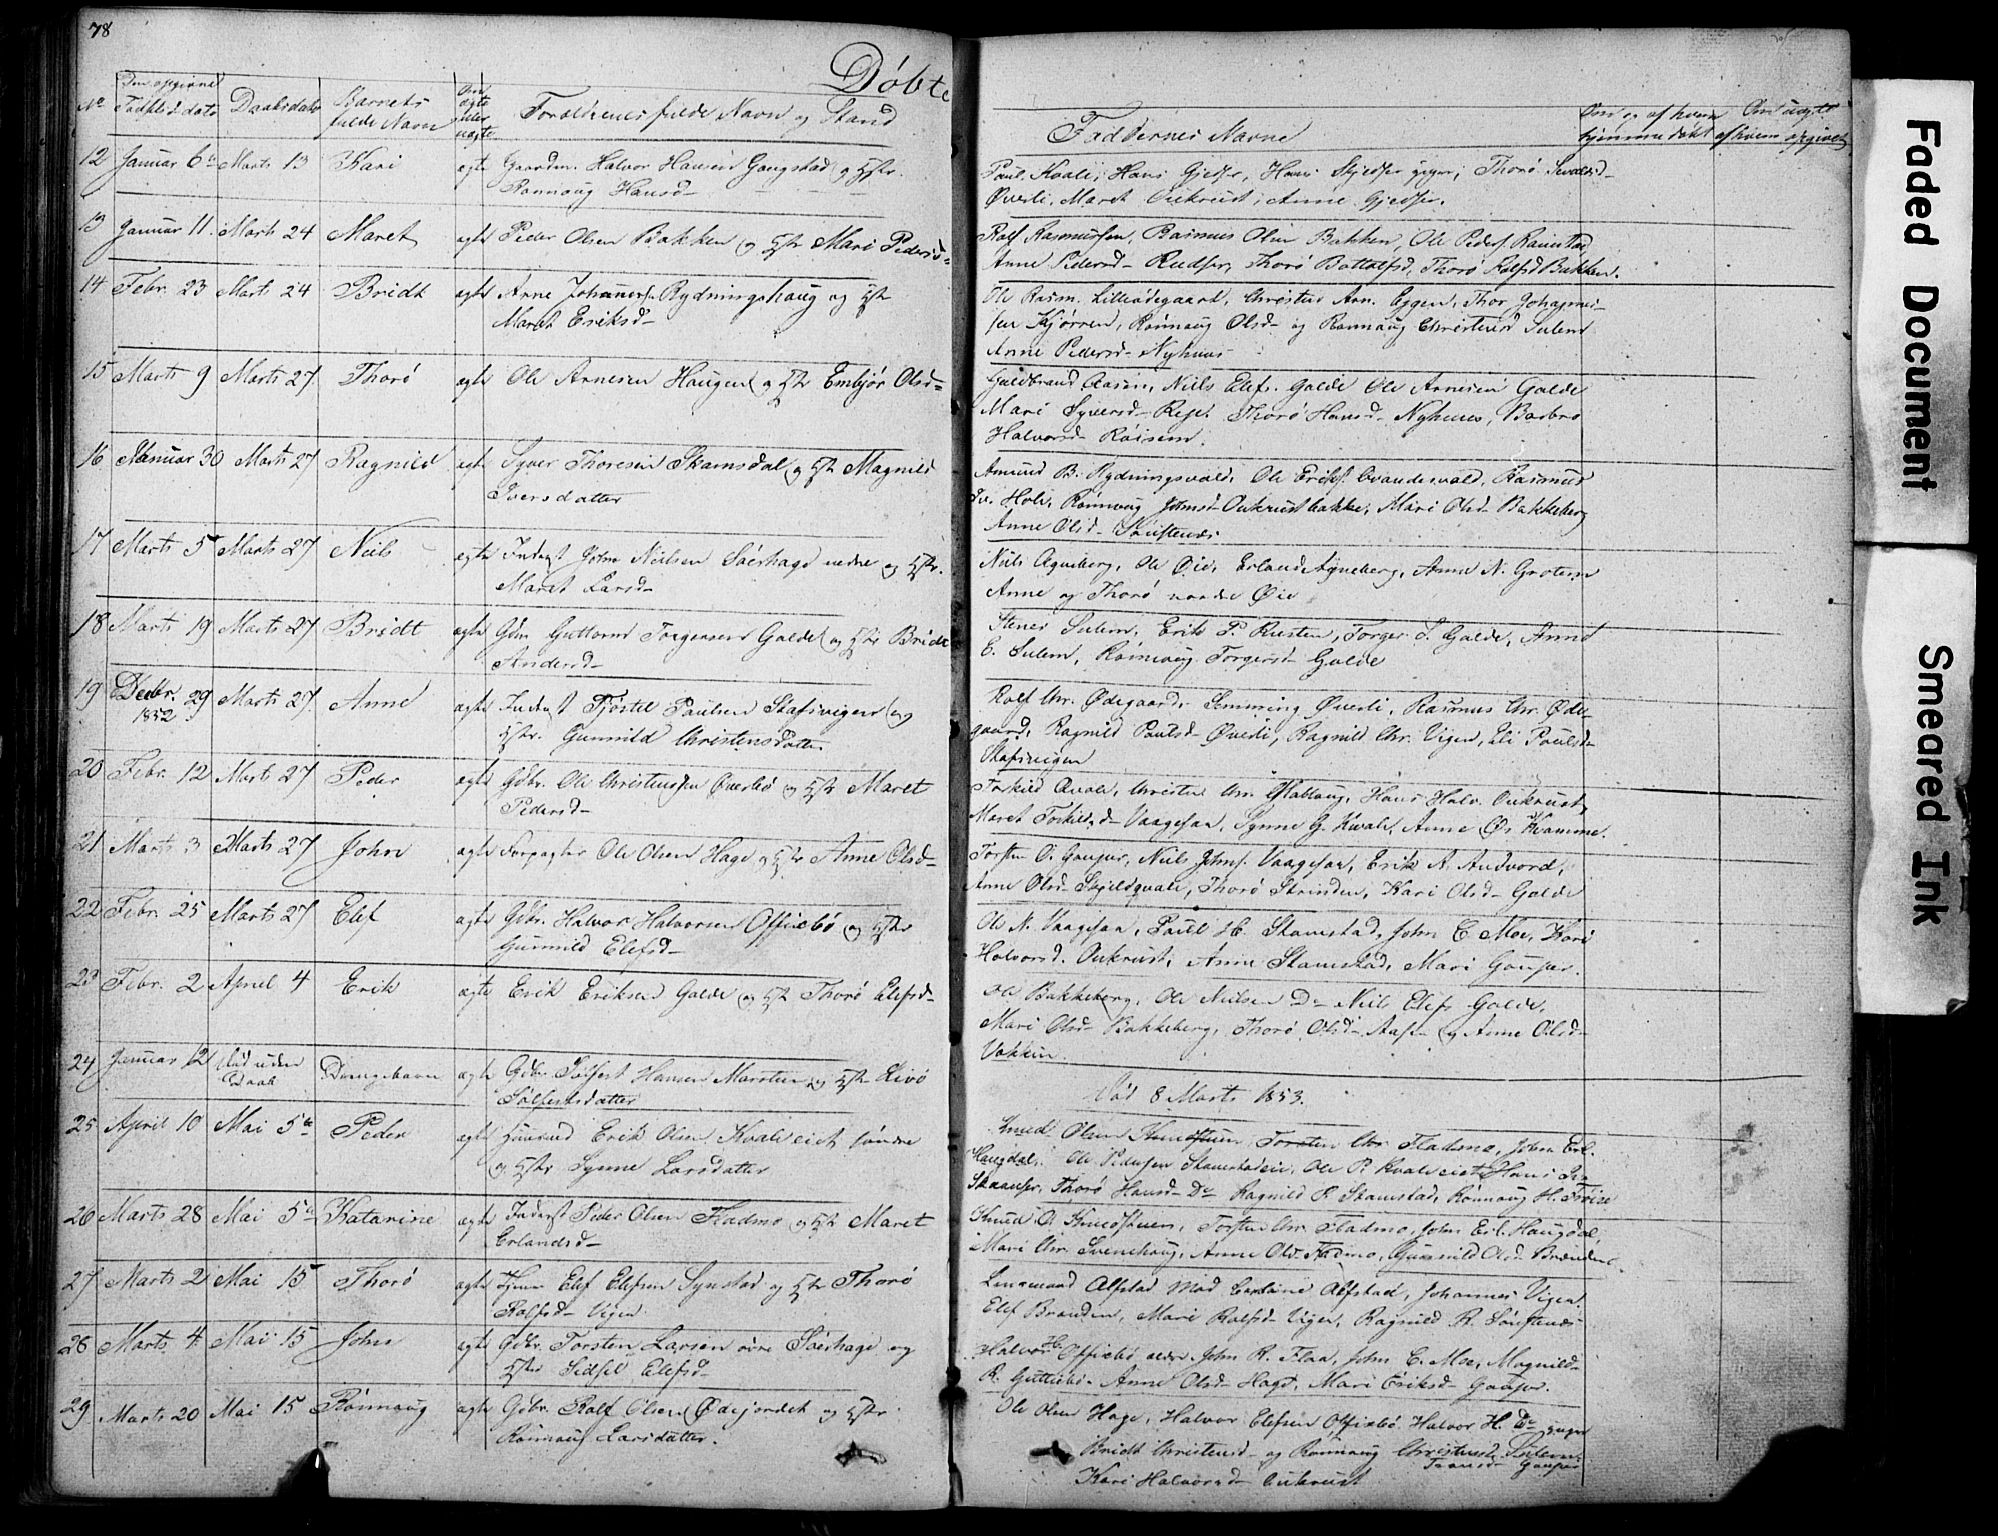 78
Døbte
No
Den opgivne
Fødselsdato
Daabsdato
Barnets
fulde Navn
Om
ægte
eller
uægte
Forældrenes fulde Navn og Stand
12 Januar 6te Marts 13 Kari ægte Gaardm. Halvor Hansen Gaugstad og Hstr.
Rønnoug Hansd-
13 Januar 11. Marts 24 Maret ægte Peder Olsen Bakken og Hstr Mari Pedersd-
14 Febr. 23 Marts 24 Bridt ægte Arne Johannesf. Rydningshaug og Hstr
Maret Eriksd-
15 Marts 9 Marts 27. Thorø ægte Ole Arnesen Haugen og Hstr Embjør Olsd-
16 Januar 30 Marts 27 Ragnild ægte Syver Thoresen Skamsdal og Hstr Magnild
Iversdatter
17 Marts 5 Marts 27 Niels ægte Inderst John Nielsen Soerhage nedre og Hstr.
Maret Larsd-
18 Marts 19 Marts 27 Bridt ægte Gdm Guttorm Torgersen Galde og Hstr Bridt
Andersd-
19 Decbr. 29 Marts 27. Anne ægte Inderst Tjøstel Paulsen Stafsvigen og
1852
Hstr. Gunnild Christensdatter
20 Febr. 12 Marts 27 Peder ægte Gdbr. Ole Christensen Øverbø og Hstr Maret
Pedersd-
21 Marts 3 Marts 27 John ægte Forpagter Ole Olsen Hage og Hstr Anne Olsd-
22 Febr. 25 Marts 27 Elef ægte Gdbr. Halvor Halvorsen Offigsbø og Hstr
Gunnild Elefsd-
23 Febr. 2 April 4 Erik ægte Erik Eriksen Galde og Hstr Thorø Elefsd-
24 Januar 12 Død uden Drengebarn ægte Gdbr. Sølfest Hansen Marstein og Hstr Livø
Daab
Sølfestsdatter
25 April 10 Mai 5te Peder ægte Huusmd Erik Olsen Kvaleeiet søndre
og Hstr Synne Larsdatter
26 Marts 28 Mai 5te Katarine ægte Inderst Peder Olsen Fladmo og Hstr Maret
Erlandsd-
27 Marts 2 Mai 15 Thorø ægte Elef Elefsen Synstad og Hstr Thorø
Rolfsd- Vigen
28 Marts 4 Mai 15 John ægte Gdbr. Torsten Larsen øvre Soerhage og
Hstr Sidsel Elefsd-
29 Marts 20 Mai 15 Rønnaug ægte Gdbr. Rolf Olsen Ødejordet og Hstr.
Rønnoug Larsdatter.
Faddernes Navne
Om og af hvem
hjemmedøbt
Om uægte
af hvem opgivet
Paul Kvale, Hans Gjedser, Hans Gjedser yngre, Thorø
Øverli, Maret Oukrust, Anne Gjedser.
Rolf Rasmussen, Rasmus Olsen Bakken, Ole Peders.
Anne Pedersd- Rudser, Thorø Bottolfsd, Thorø Rolfsd Bakken.
Ole Rasm. Lilleødegaard, Christen Arn. Eggen, Thor Johannes-
sen Kjørren, Rønnaug Olsd- og Rønnaug Christensd Sulem
Anne Pedersd- Nyhuus
Guldbrand Aasen, Niels Elefs. Galde Ole Arnesen Galde
Mari Syversd- Thorø Hansd- Nyhuus, Barbro
Halvorsd- Røisem.
Amund B. Rydningsvold, Ole Eriks. Rasmus
Iv. Hole, Rønnoug Johnsd- Oukrustbakke, Mari Olsd- Bakkeberg
Anne Olsd- Sønstenæs
Niels Agneberg, Ole Øie, Erland Agneberg, Anne N. Grotem
Anne og Thorø Øie
Stener Sulem, Erik P. Rusten, Torger S. Galde, Anne
E. Sulem, Rønnoug Torgersd- Galde
Rolf Chr. Ødegaard, Semming Øverli, Rasmus Chr. Øde-
gaard, Ragnild Paulsd- Øverli, Ragnild Chr. Vigen, Eli Paulsd-
Stafsvigen
Torkild Qvale, Christen Chr. Hans Halv. Oukrust,
Maret Torkildsd- Vaagesaa, Synne G. Kvale, Anne Kvamme.
Torsten O. Gouper, Niels Johns. Vaagesaa, Erik A. Andvord,
Anne Olsd- Skjeldqvale, Thorø Strinden, Kari Olsd- Galde
Ole N. Vaagesaa, Paul H. Stamstad, John E Moe, Kari
Halvorsd. Oukrust, Anne Stamstad, Mari Gouper.
Ole Bakkeberg, Ole Nielsen Do Niels Elefs Galde,
Mari Olsd- Bakkeberg, Thorø Olsd- Aasen og Anne Olsd-
Bakken
Død 8 Marts 1853.
Knud Olsen Knudstuen Torsten Chr. Fladmo, John Erl.
Haugdal, Ole Pedersen Stamstadeie, Ole P. Kvaleeiet Hans
Thorø Hansd- Do Ragnild P. Stamstad, Rønnaug H.
Knud O. Knudstuen, Torsten Chr. Fladmo, John Erl. Haugdal,
Mari Chr. Svenshaug, Anne Olsd. Fladmo, Gunnild Olsd- Brænden.
Lensmand Alfstad Mad Alfstad, Johannes Vigen.
Elef Brænden, Mari Rolfsd- Vigen, Ragnild R. Sønstenæs
Halvor H. Offigsbø John R. Flaa, John E. Moe, Magnild
R. Anne Olsd- Hage, Mari Eriksd- Gouper.
Ole Olsen Hage, Halvor Elefsen Offigsbø Halvor H. Do yngre
Bridt Christensd- og Rønnaug Christensd. Sulem
Kari Halvorsd- Oukrust
Faded Document
Smeared Ink